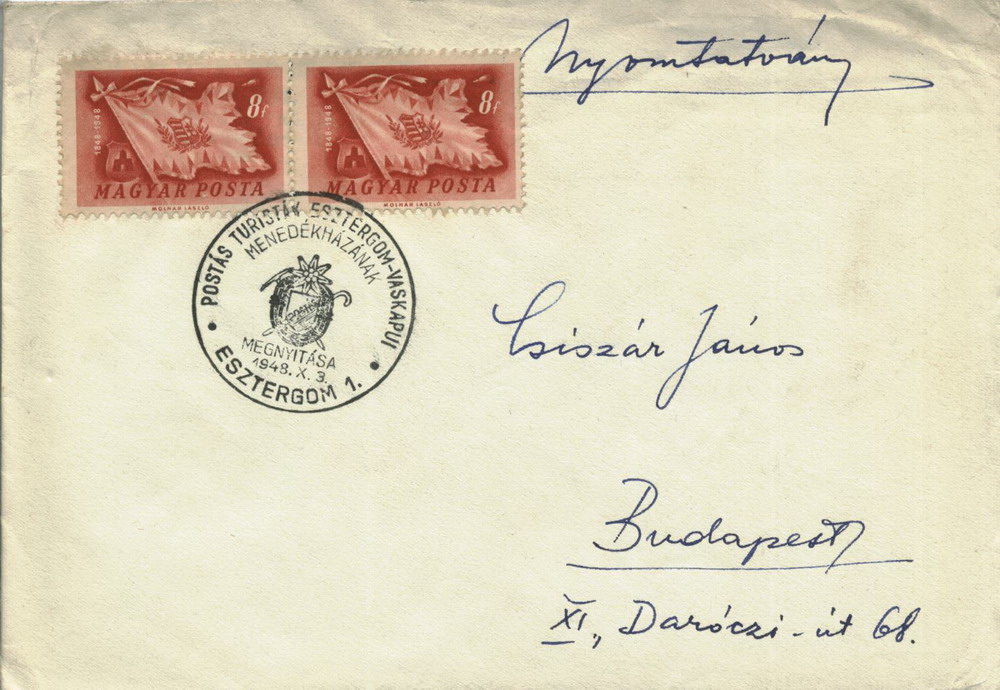 Nyomtatvány
1848-1948
8f
MAGYAR POSTA
MOLNÁR LÁSZLÓ
1848-1948
8f
MAGYAR POSTA
MOLNÁR LÁSZLÓ
POSTÁS TURISTÁK ESZTERGOM-VASKAPUI
MENEDÉKHÁZÁNAK
MEGNYITÁSA
1948. X. 3.
ESZTERGOM 1.
Csiszár János
Budapest
XI., Daróczi-út 68.